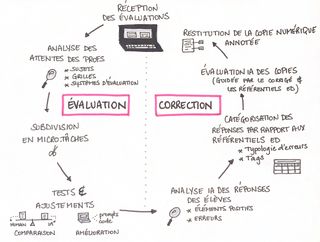 RÉCEPTION
DES ÉVALUATIONS
ANALYSE DES
ATTENTES DES PROFS
* SUJETS
* GRILLES
* SYSTÈMES D'ÉVALUATION
ÉVALUATION
SUBDIVISION
EN MICROTÂCHES
TESTS &
AJUSTEMENTS
HUMAIN
IA
COMPARAISON
prompts
code
AMÉLIORATION
RESTITUTION DE LA COPIE NUMÉRIQUE
ANNOTÉE
ÉVALUATION IA DES COPIES
(GUIDÉE PAR LE CORRIGÉ &
LES RÉFÉRENTIELS ED)
CORRECTION
CATÉGORISATION DES
RÉPONSES PAR RAPPORT AUX
RÉFÉRENTIELS ED
* Typologie d'erreurs
* Tags
ANALYSE IA DES RÉPONSES
DES ÉLÈVES
* ÉLÉMENTS POSITIFS
* ERREURS